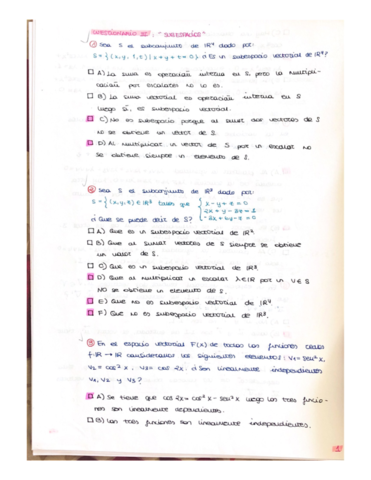 CUESTIONARIO II: "SUBESPACIOS"
① Sea S el subconjunto de ℝ⁴ dado por:
S = {(x, y, z, t) | x + y + z = 0} ¿Es un subespacio vectorial de ℝ⁴?
A) La suma es operación interna en S pero la multipli-
cación por escalares no lo es.
B) La suma vectorial es operación interna en S
luego sí, es subespacio vectorial.
C) No es subespacio porque al sumar dos vectores de S
no se obtiene un vector de S.
D) Al multiplicar un vector de S por un escalar no
se obtiene siempre un elemento de S.
Sea S el subconjunto de ℝ³ dado por:
S = {(x, y, z) ∈ ℝ³ tales que
x - y + z = 0
¿Que se puede decir de S?
A) Que es un subespacio vectorial de ℝ⁴.
B) Que al sumar vectores de S siempre se obtiene
un valor de S.
C) Que es un subespacio vectorial de ℝ³.
D) Que al multiplicar un escalar λ ∈ ℝ por un v ∈ S
NO se obtiene un elemento de S.
E) Que no es subespacio vectorial de ℝ⁴.
F) Que no es subespacio vectorial de ℝ³.
En el espacio vectorial F(X) de todas las funciones reales
f: ℝ → ℝ consideramos los siguientes elementos: V₁ = sen² x,
V₂ = cos² x, V₃ = cos 2x. ¿Son linealmente independientes
V₁, V₂ y V₃?
A) Se tiene que cos 2x = cos² x - sen² x luego las tres funcio-
nes son linealmente dependientes.
B) Las tres funciones son linealmente independientes.